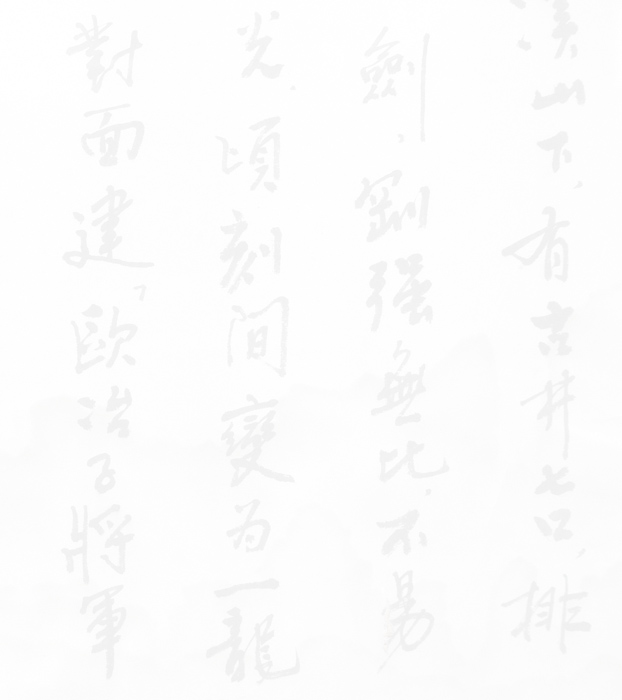 溪山下，有古井七口，排
劍，剛强無比，不易
光，頃刻間變为一龍
對面建「歐冶子將軍